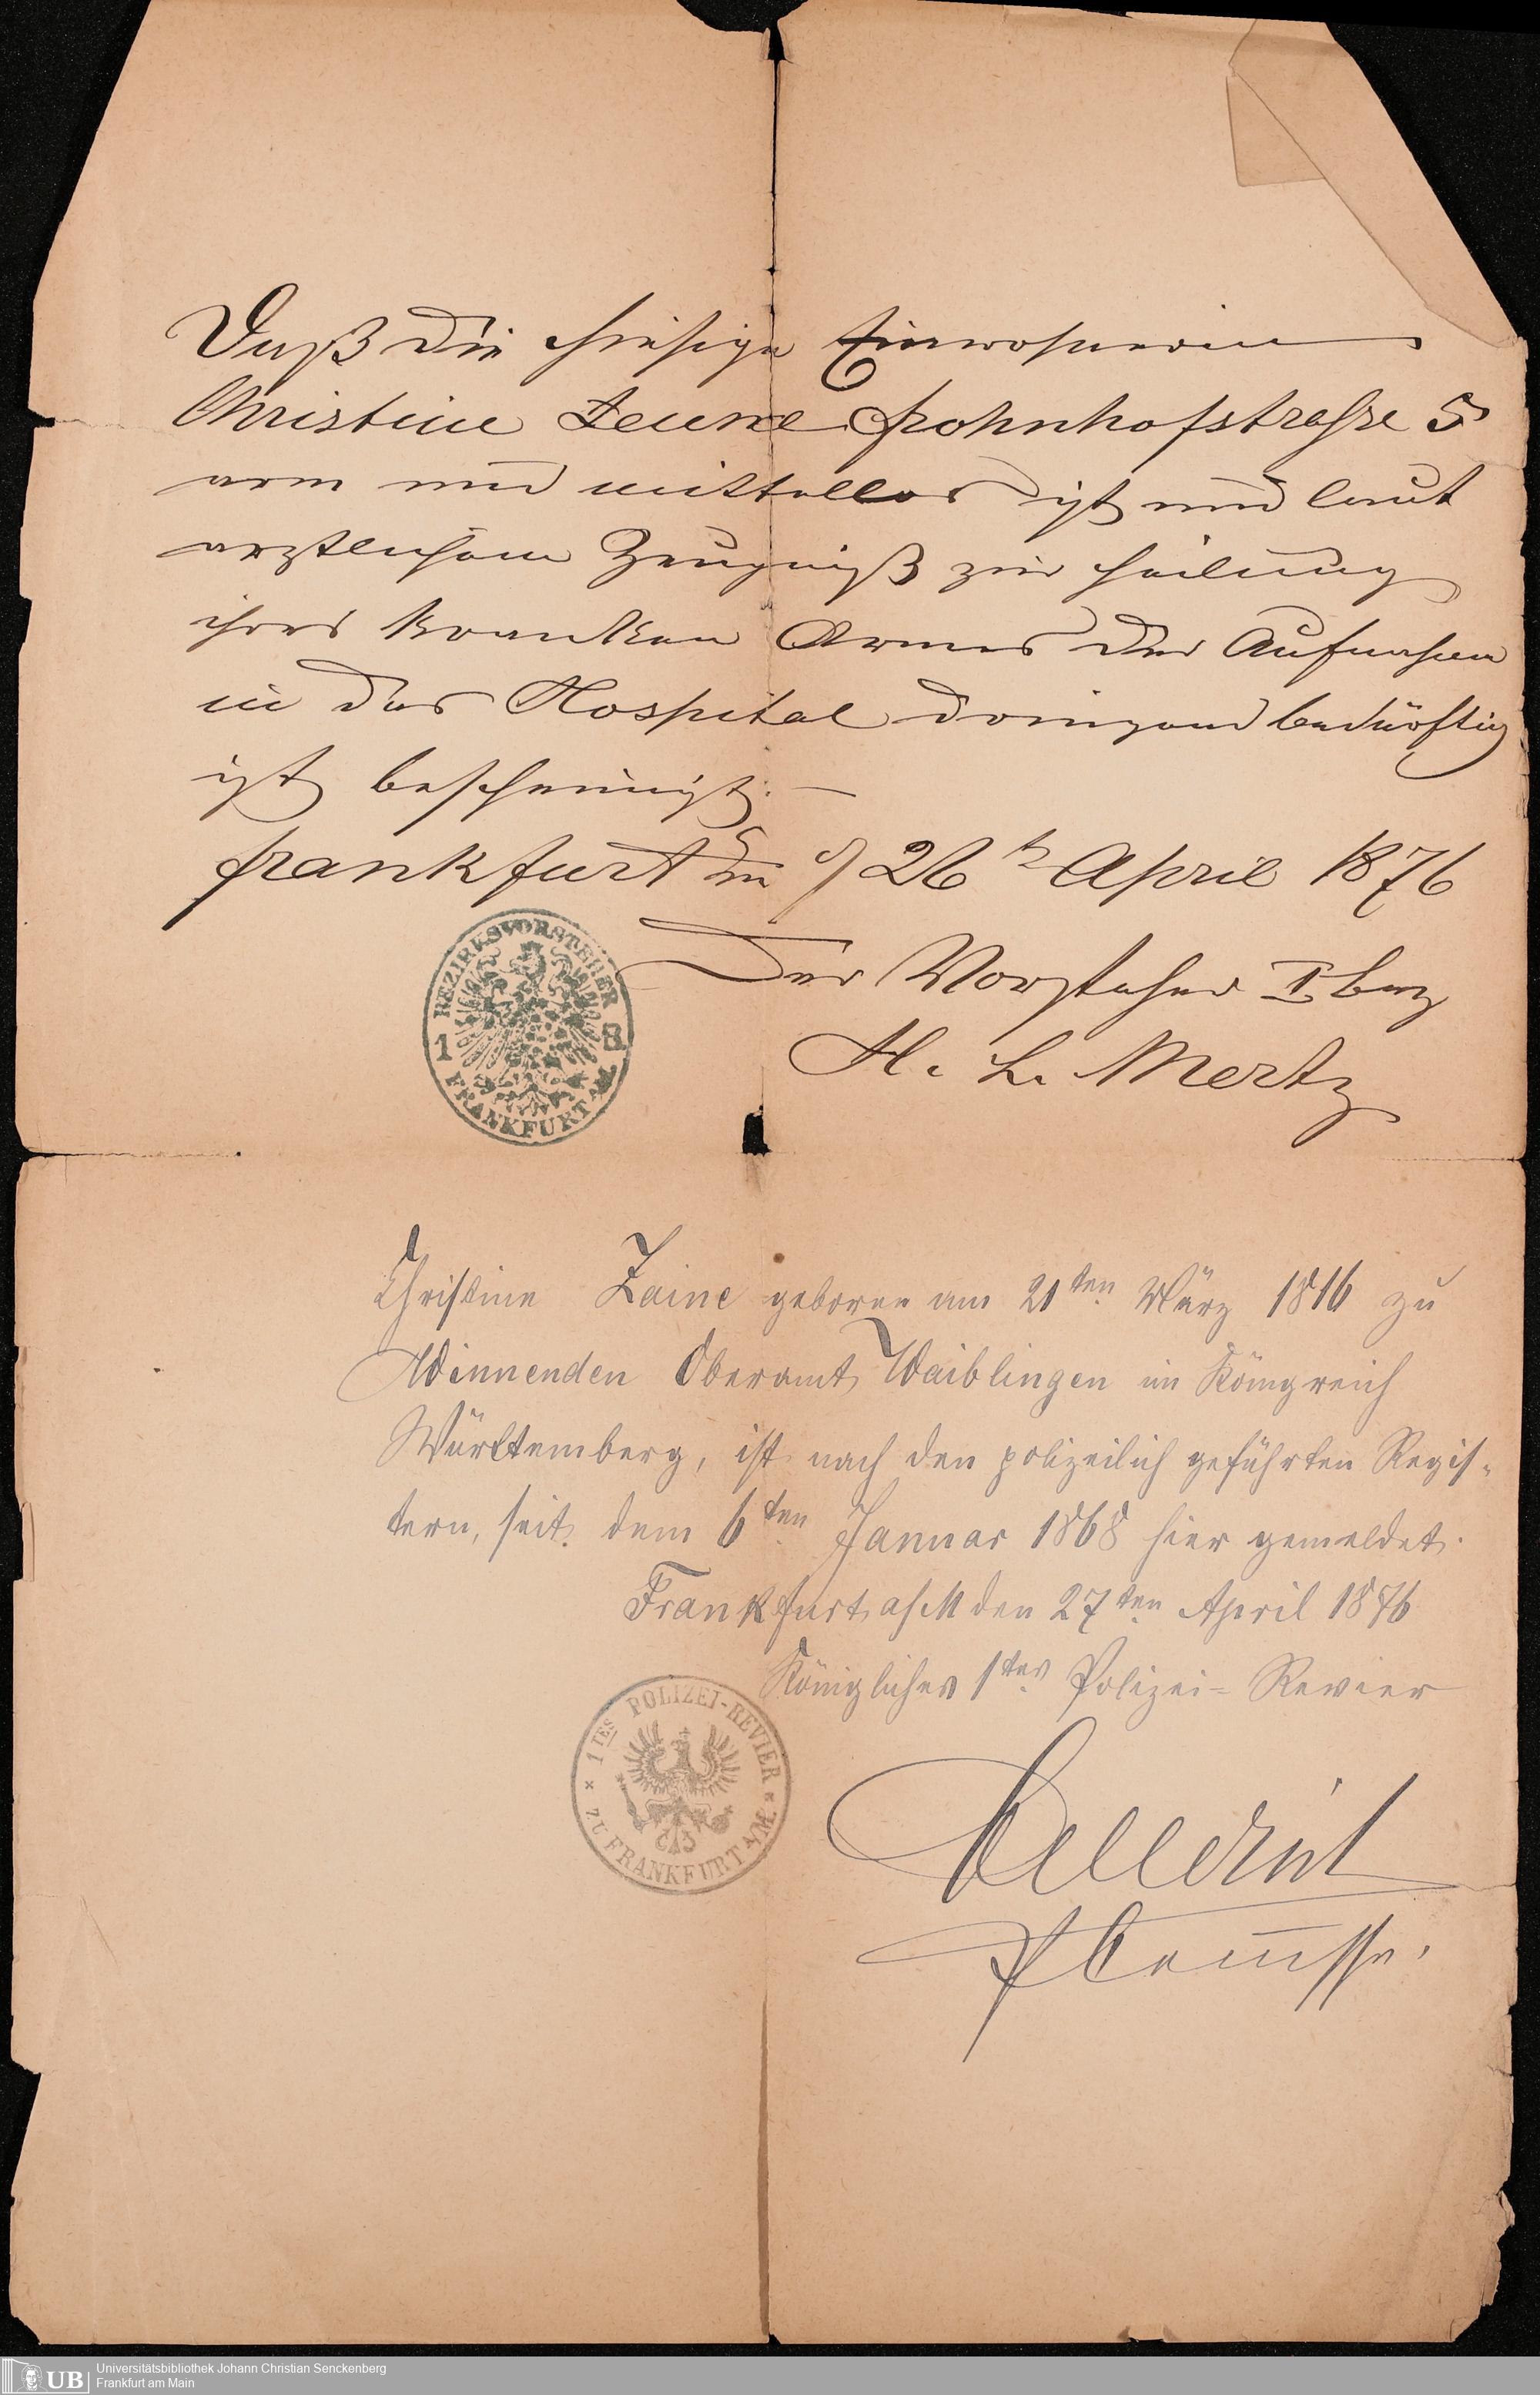 Daß die hiesige Einwohnerin
Christine Zeune Frohnhofstraße 5
arm und mittellos ist und laut
arztlichem Zeugniß zur Heilung
ihres kranken Armes der Aufnahme
in das Hospital dringend bedürftig
ist bescheinigt. —
Frankfurt a/m d 26 t April 1876
BEZIRKSVORSTEHER
1 B.
FRANKFURT A/M.
Der Vorsteher I Bez
H. L. Mertz
Christine Zaine geboren am 21ten März 1816 zu
Winnenden Oberamt Waiblingen im Königreich
Württemberg, ist nach den polizeilich geführten Regis-
tern, seit dem 6ten Januar 1868 hier gemeldet.
Frankfurt a/M den 27ten April 1876
Königliches 1tes Polizei-Revier
1TES POLIZEI-REVIER
ZU FRANKFURT A/M.
UB Universitätsbibliothek Johann Christian Senckenberg
Frankfurt am Main